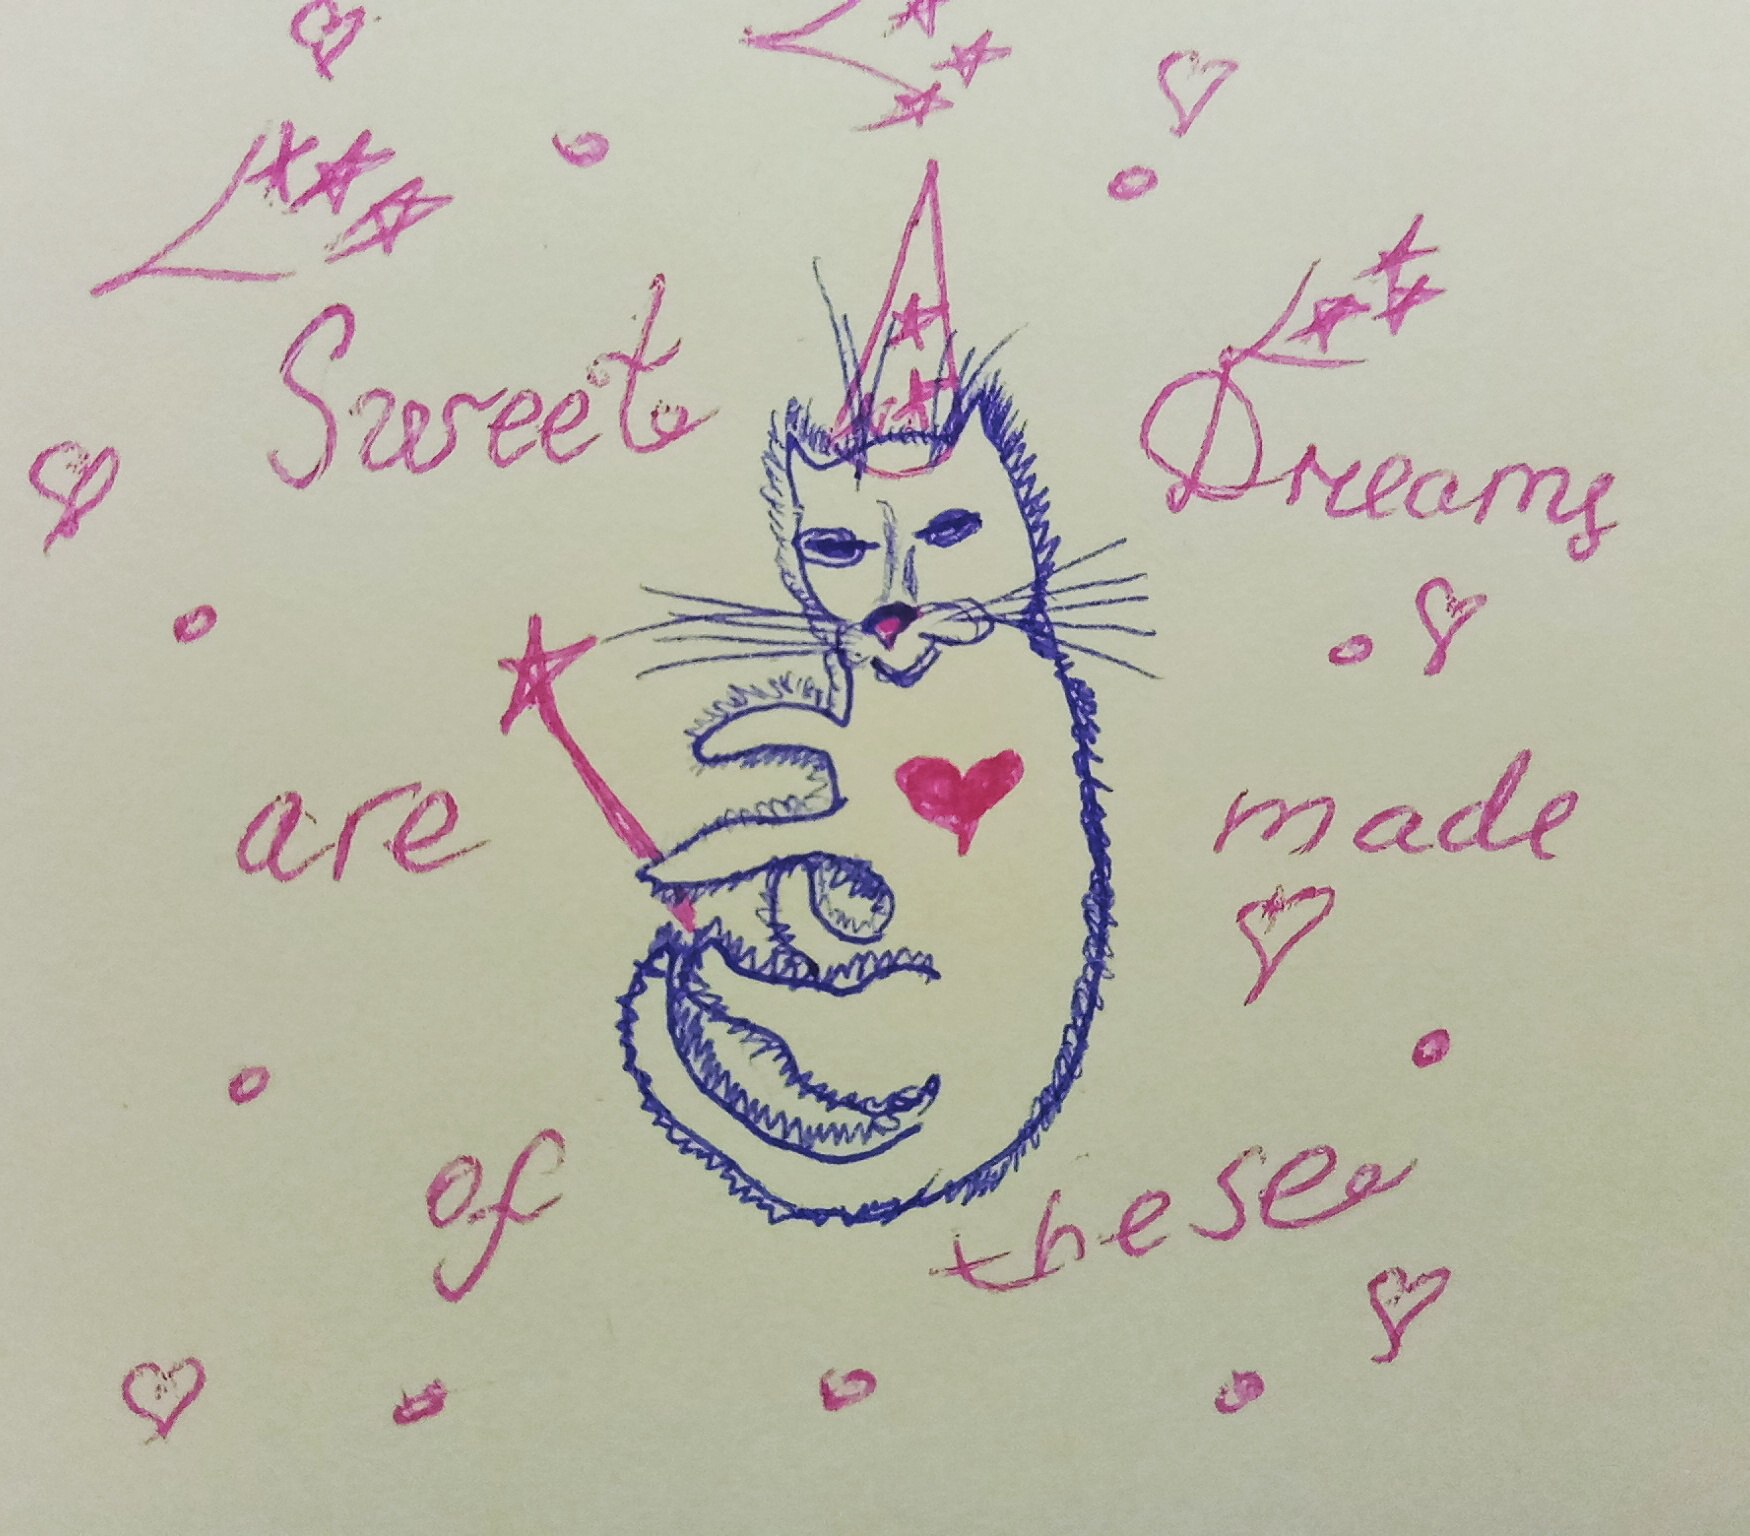 Sweet Dreams
are made
of these